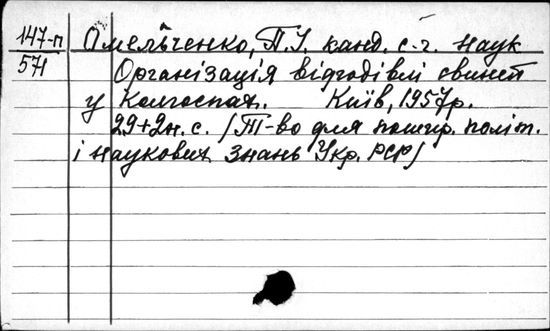 147-п Омельченко, П.І. канд. с-г. наук
571 Організація відгодівлі свиней
у колгоспах. Київ, 1957р.
29+2н. с. (Т-во для пошир. політ.
і наукових знань Укр. РСР)